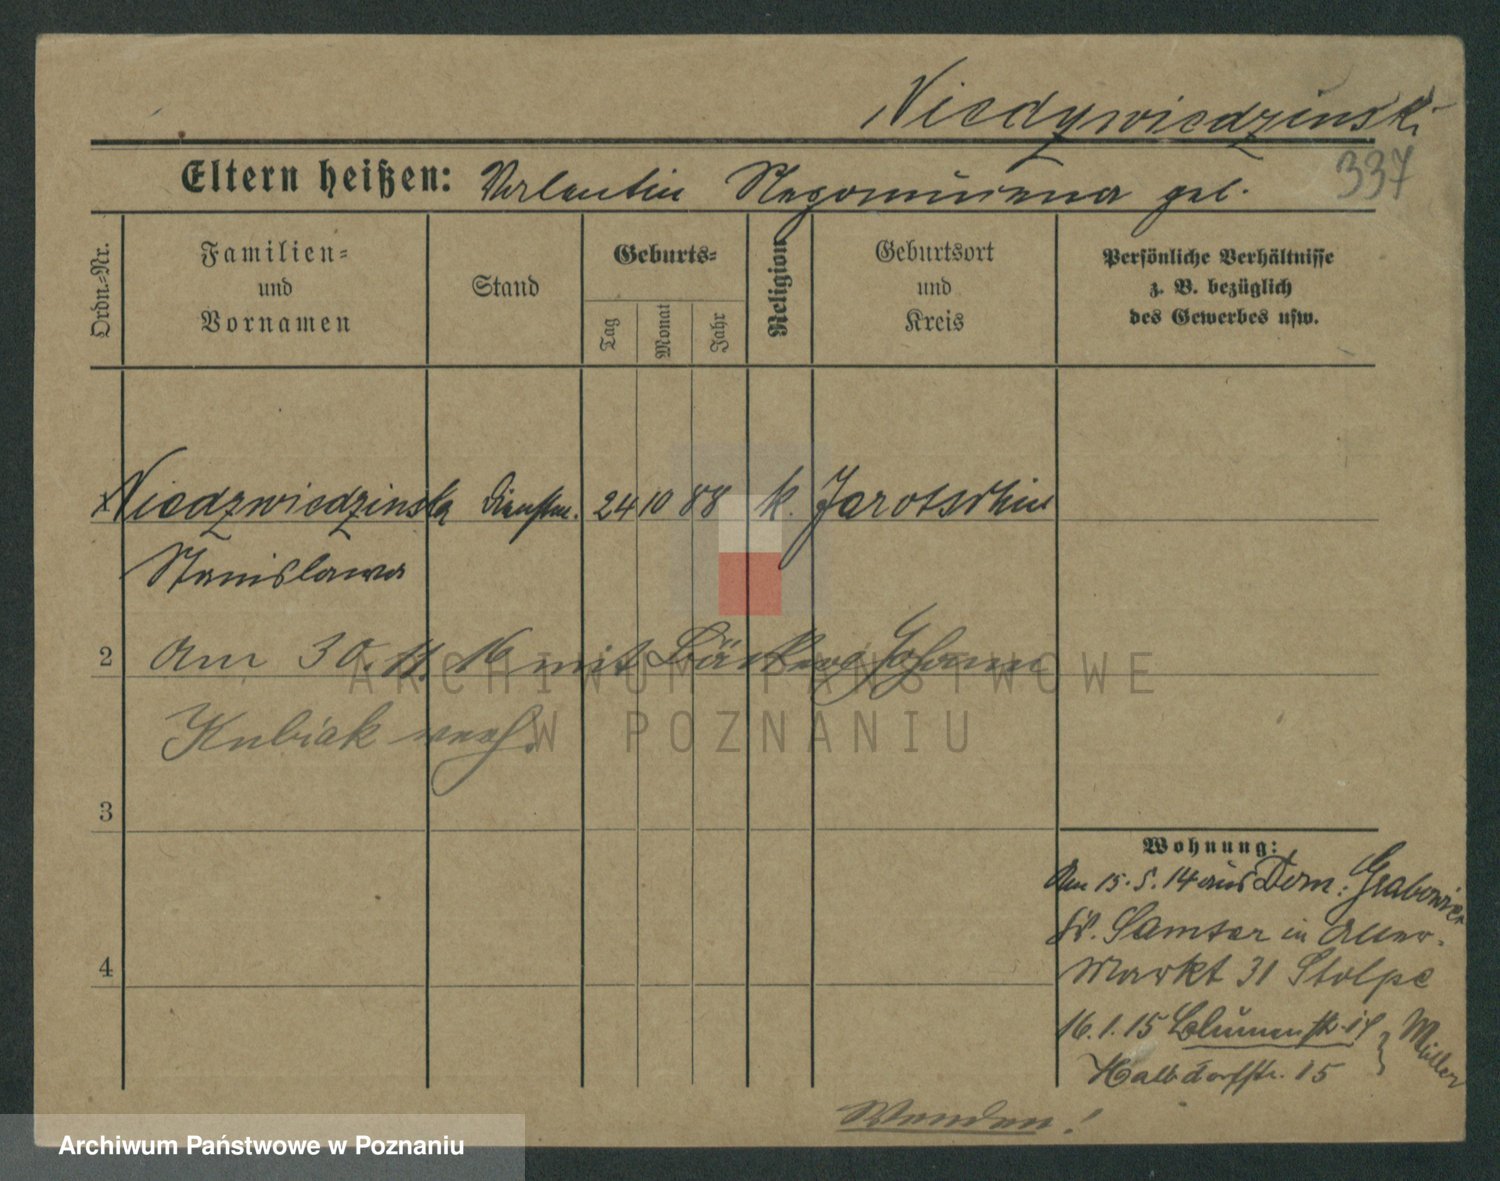 Niedzwiedzinski
337
Eltern heißen: Valentin Nepomucena geb.
Ordn.-Nr.
Familien- und Vornamen
Stand
Geburts-
Tag
Monat
Jahr
Religion
Geburtsort und Kreis
Persönliche Verhältnisse z. B. bezüglich des Gewerbes usw.
Niedzwiedzinska Dienstm. 24 10 88 k. Jarotschin
Stanislawa
2 Am 30.11.16 mit Bäcker Johann
Kubiak verh.
3
4
Wohnung:
Am 15.5.14 aus Dom. Grabowiec
Kr. Samter in
Markt 31 Stolpe
16.1.15 Blumenstr.
Halbdorfstr. 15
Müller
Wenden!
ARCHIWUM PAŃSTWOWE
W POZNANIU
Archiwum Państwowe w Poznaniu